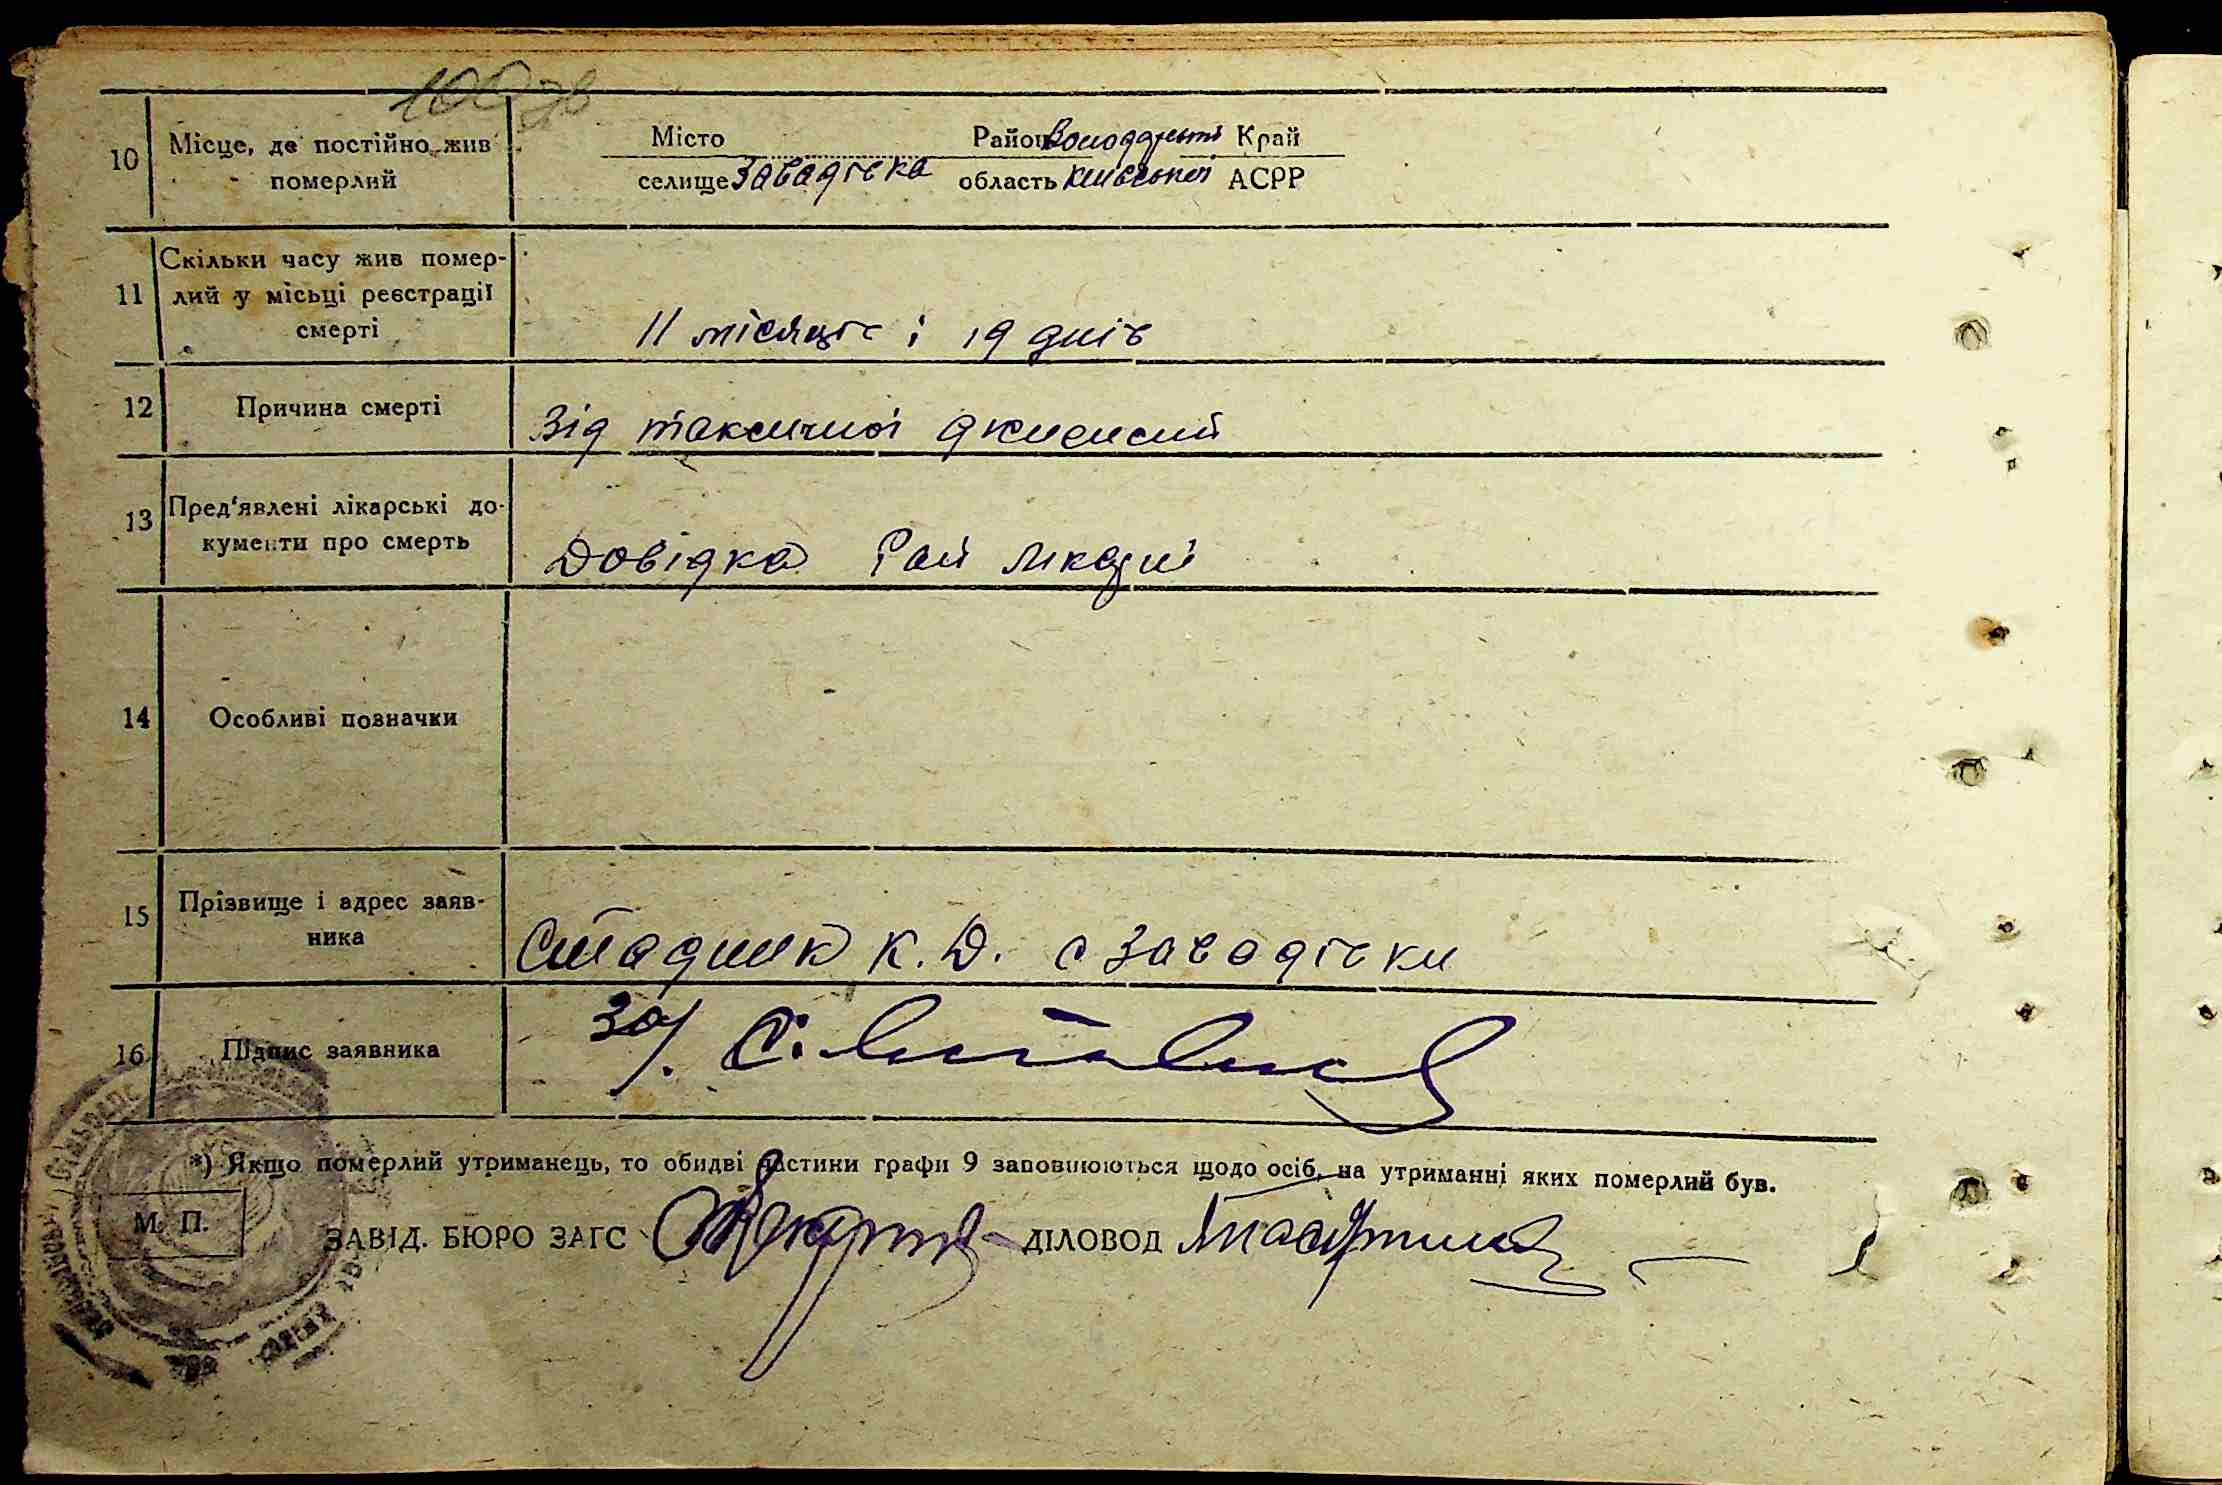 100 зв
10 Місце, де постійно жив
померлий
Місто Район Володарський Край
селище Завадівка область Київської АСРР
11 Скільки часу жив помер-
лий у місьці реєстрації
смерті
11 місяців і 19 днів
12 Причина смерті
Від таксичної
13 Пред'явлені лікарські до-
кументи про смерть
Довідка Рай лікарні
14 Особливі позначки
15 Прізвище і адрес заяв-
ника
Стадник К. Д. с Завадівки
16 Підпис заявника
за/.
*) Якщо померлий утриманець, то обидві частини графи 9 заповнюються щодо осіб, на утриманні яких померлий був.
М. П.
ЗАВІД. БЮРО ЗАГС ДІЛОВОД